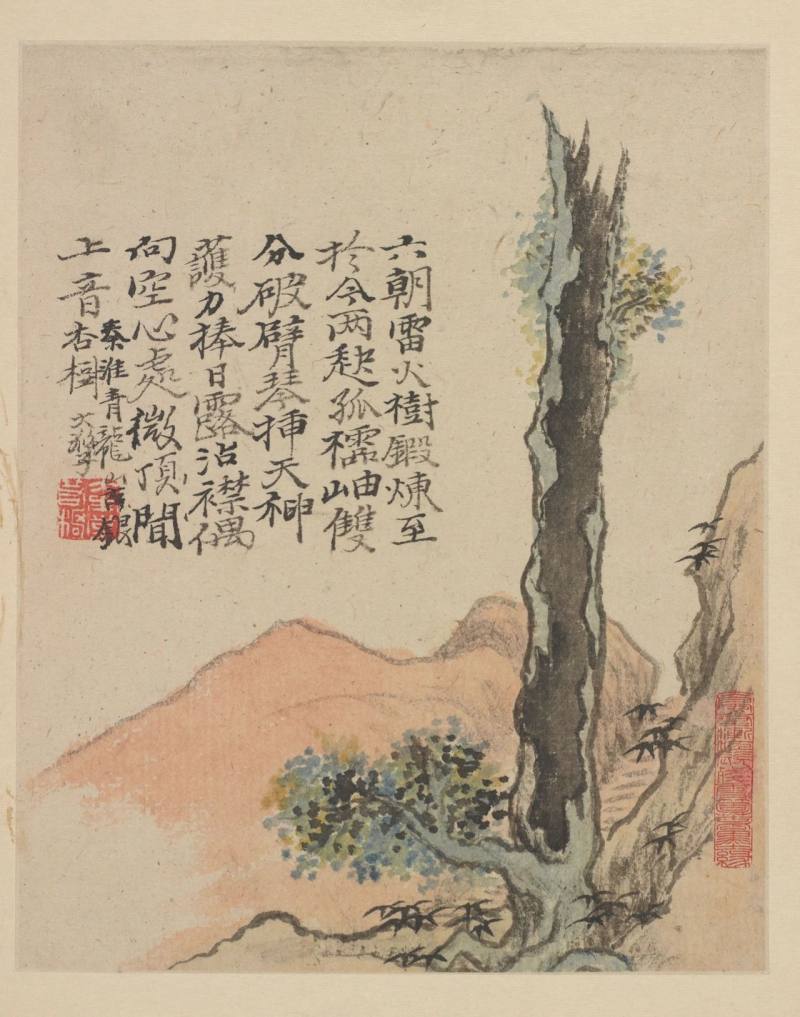 六朝雷火樹鍛煉至
於今两孤襦岫雙
分破臂琴插天神
護力捧日露沾襟偶
向空心處微頂聞
上音
秦淮青龍山古銀
杏樹 大滌子